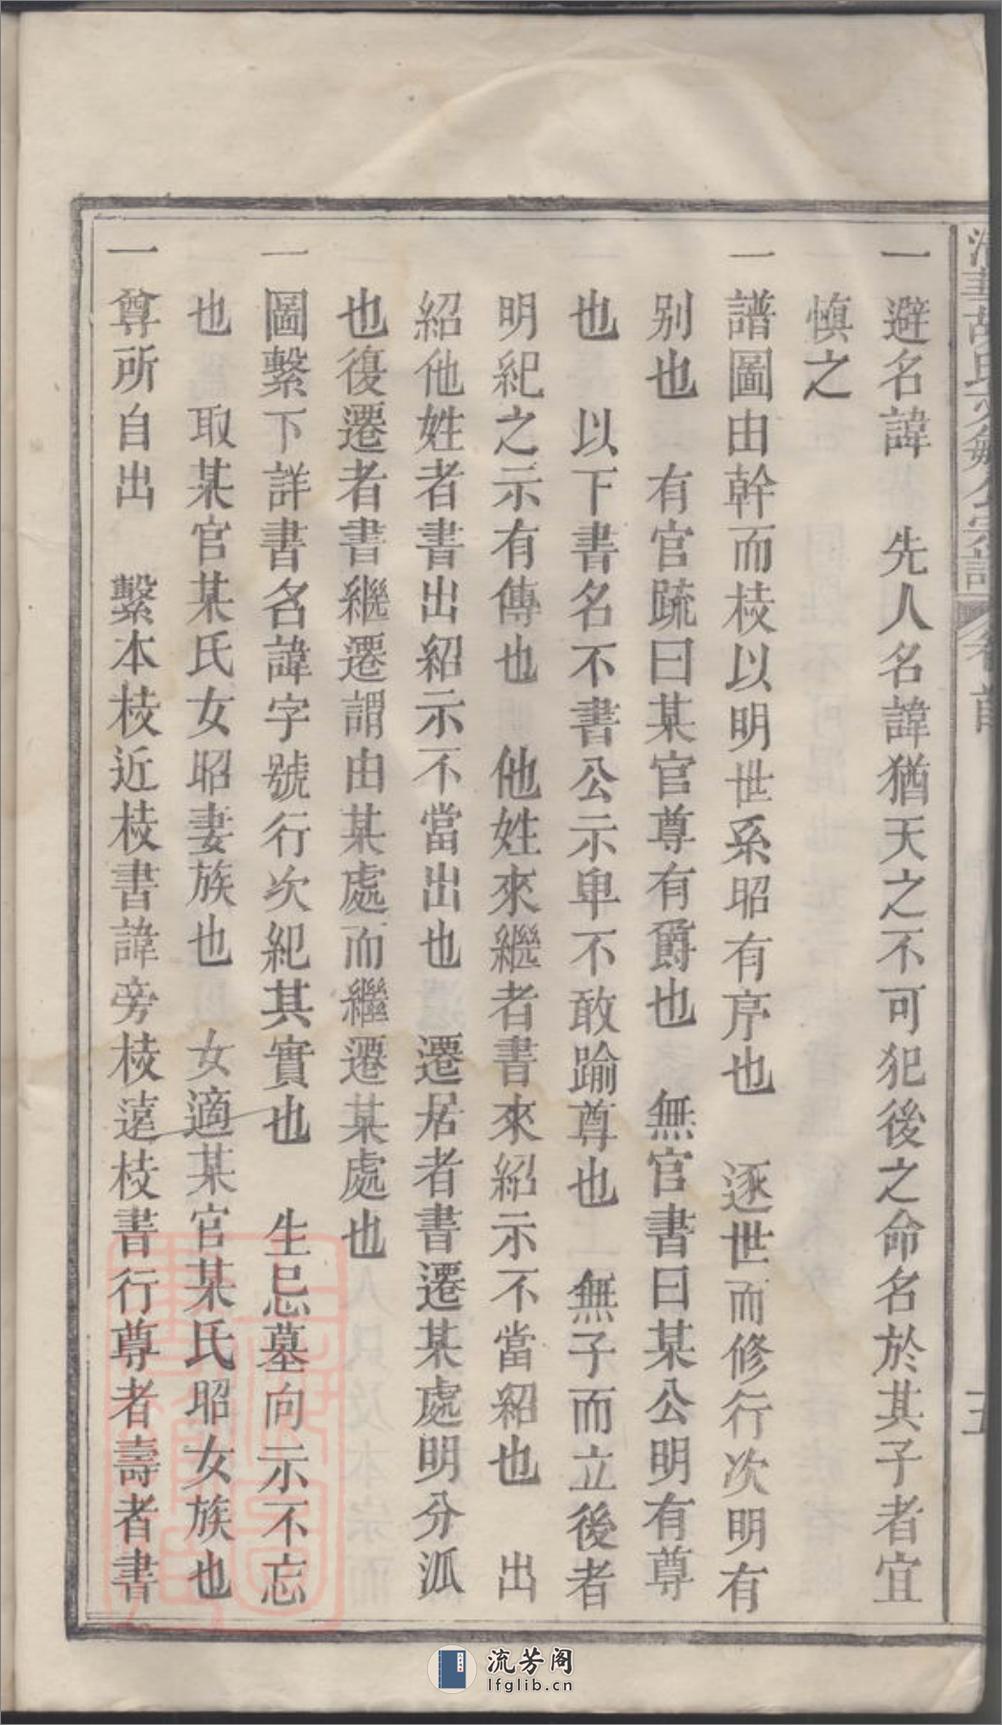 一 避名諱 先人名諱猶天之不可犯後之命名於其子者宜
慎之
一 譜圖由幹而枝以明世系昭有序也 逐世而修行次明有
别也 有官䟽曰某官尊有爵也 無官書曰某公明有尊
也 以下書名不書公示卑不敢踰尊也 無子而立後者
明紀之示有傳也 他姓來繼者書來紹示不當紹也 出
紹他姓者書出紹示不當出也 遷居者書遷某處明分派
也復遷者書繼遷謂由某處而繼遷某處也
一 圖繫下詳書名諱字號行次紀其實也 生忌墓向示不忘
也 取某官某氏女昭妻族也 女適某官某氏昭女族也
一 尊所自出 繫本枝近枝書諱旁枝遠枝書行尊者壽者書
流芳阁
lfglib.cn